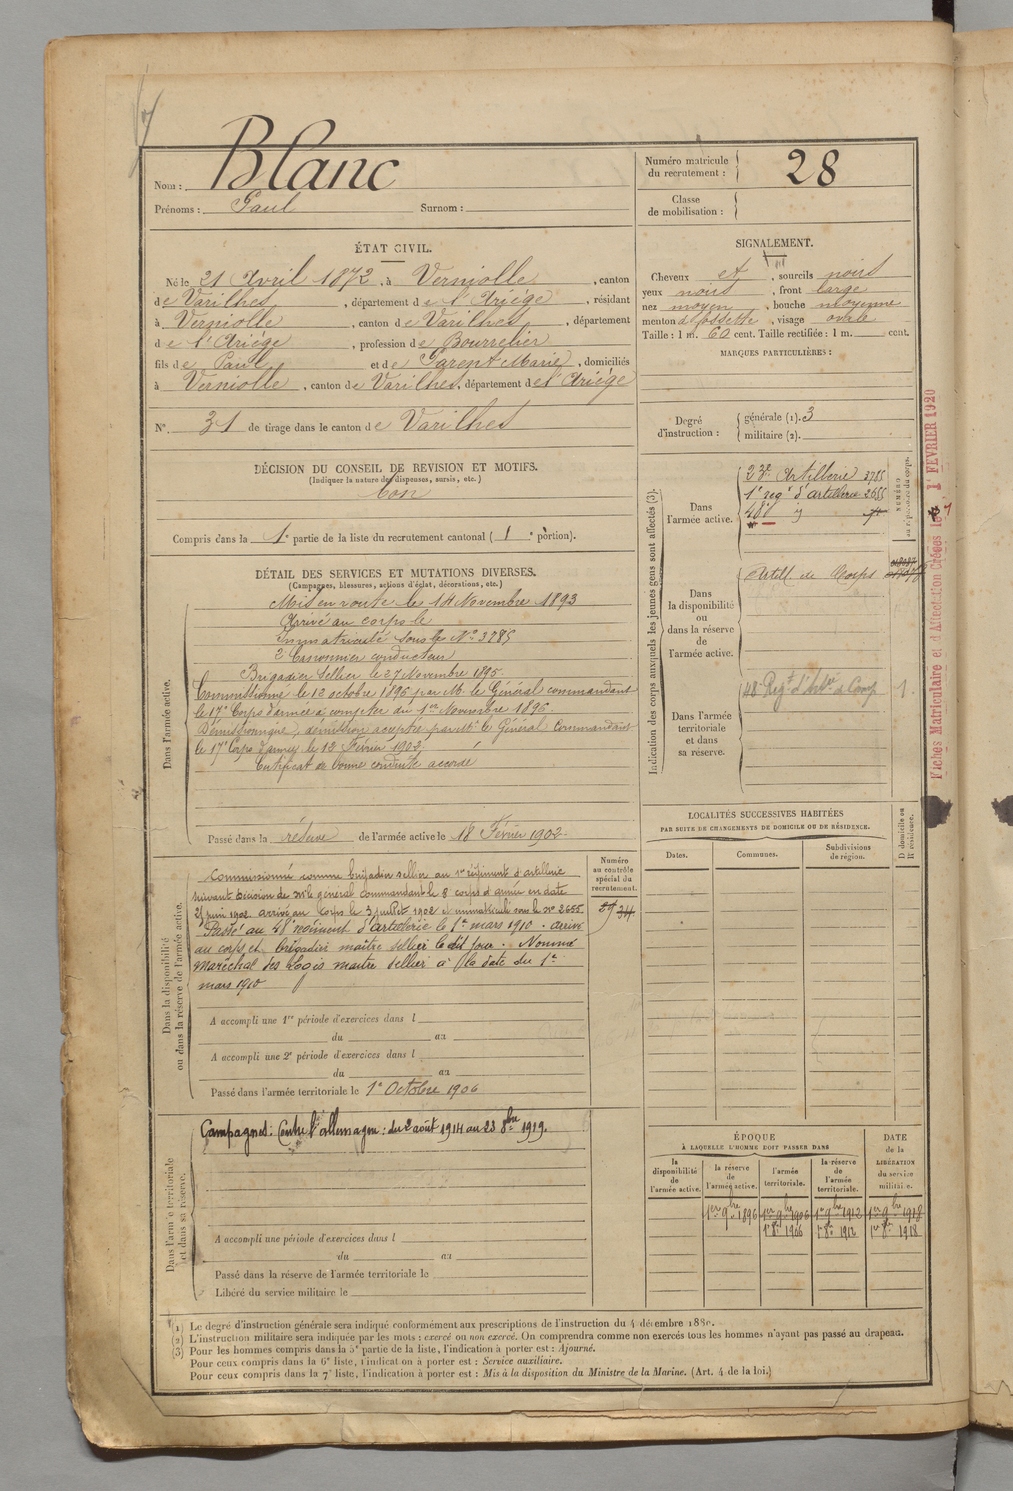 Nom : Blanc
Prénoms : Paul Surnom :
Numéro matricule du recrutement : 28
Classe de mobilisation :
ÉTAT CIVIL.
Né le 21 Avril 1872, à Verniolle, canton
de Varilhes, département de l'Ariége, résidant
à Verniolle, canton de Varilhes, département
de l'Ariége, profession de Bourrelier
fils de Paul et de Parent Marie, domiciliés
à Verniolle, canton de Varilhes, département de l'Ariége
No. 31 de tirage dans le canton de Varilhes
SIGNALEMENT.
Cheveux et, sourcils noirs
yeux noirs, front large
nez moyen, bouche moyenne
menton à fossette, visage ovale
Taille : 1 m. 60 cent. Taille rectifiée : 1 m. cent.
MARQUES PARTICULIÈRES :
Degré d'instruction : générale (1). 3
militaire (2).
DÉCISION DU CONSEIL DE REVISION ET MOTIFS.
(Indiquer la nature des dispenses, sursis, etc.)
bon
Compris dans la 1e partie de la liste du recrutement cantonal (1e portion).
DÉTAIL DES SERVICES ET MUTATIONS DIVERSES.
(Campagnes, blessures, actions d'éclat, décorations, etc.)
Dans l'armée active.
Mis en route le 14 Novembre 1893
Arrivé au corps le
Immatriculé sous le No 3785
2e Canonnier conducteur
Brigadier Sellier le 27 Novembre 1895.
Commissionné le 12 octobre 1896 par M. le Général commandant
le 17e Corps d'armée à compter du 1er Novembre 1896.
Démissionnaire, démission acceptée par Mr le Général Commandant
le 17e Corps d'armée le 12 Février 1902
Certificat de bonne conduite accordé
Passé dans la réserve de l'armée active le 18 Février 1902.
Indication des corps auxquels les jeunes gens sont affectés (3).
NUMÉRO
Dans l'armée active.
23e Artillerie 3785
1er régt d'artillerie 2655
48e
Dans la disponibilité ou dans la réserve de l'armée active.
Artill. de Corps
Dans l'armée territoriale et dans sa réserve.
48 Régt d'Artie de Camp 1.
Fiches Matriculaire et d'Affectation Créées le 1er FEVRIER 1920
Dans la disponibilité ou dans la réserve de l'armée active.
Commissionné comme brigadier sellier au 1er régiment d'artillerie
suivant décision de Mr le général Commandant le 8 corps d'armée en date
25 juin 1902 arrivé au Corps le 3 juillet 1902 et immatriculé sous le no 2655.
Passé au 48e régiment d'artillerie le 1er mars 1910. arrivé
au corps et brigadier maître sellier le dit jour. Nommé
Maréchal des Logis maître sellier à la date du 1er
mars 1910
Numéro au contrôle spécial du recrutement.
A accompli une 1re période d'exercices dans l
du au
A accompli une 2e période d'exercices dans l
du au
Passé dans l'armée territoriale le 1er Octobre 1906
LOCALITÉS SUCCESSIVES HABITÉES
PAR SUITE DE CHANGEMENTS DE DOMICILE OU DE RÉSIDENCE.
Dates. Communes. Subdivisions de région. D domicile ou R résidence.
Dans l'armée territoriale et dans sa réserve.
Campagnes : Contre l'allemagne : du 2 août 1914 au 23 8bre 1919.
A accompli une période d'exercices dans l
du au
Passé dans la réserve de l'armée territoriale le
Libéré du service militaire le
ÉPOQUE
À LAQUELLE L'HOMME DOIT PASSER DANS
DATE de la LIBÉRATION du service militaire.
la disponibilité de l'armée active. la réserve de l'armée active. l'armée territoriale. la réserve de l'armée territoriale.
1er 9bre 1896 1er 9bre 1906 1er 9bre 1912 1er 9bre 1918
1er 8bre 1906 1er 8bre 1912 1er 8bre 1918
(1) Le degré d'instruction générale sera indiqué conformément aux prescriptions de l'instruction du 4 décembre 1889.
(2) L'instruction militaire sera indiquée par les mots : exercé ou non exercé. On comprendra comme non exercés tous les hommes n'ayant pas passé au drapeau.
(3) Pour les hommes compris dans la 5e partie de la liste, l'indication à porter est : Ajourné.
Pour ceux compris dans la 6e liste, l'indication à porter est : Service auxiliaire.
Pour ceux compris dans la 7e liste, l'indication à porter est : Mis à la disposition du Ministre de la Marine. (Art. 4 de la loi.)